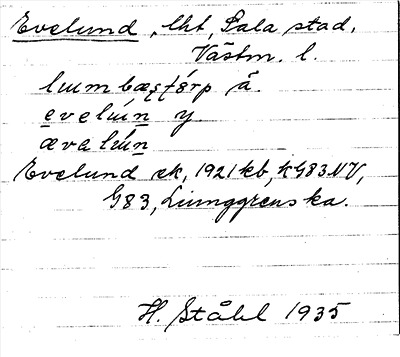 Evelund, lht, Sala stad,
Västm. l.
å.
evelún y
ævelún
Evelund ek, 1921 kb, kG83NV,
G83, Ljunggrens ka.
H. Ståhl 1935